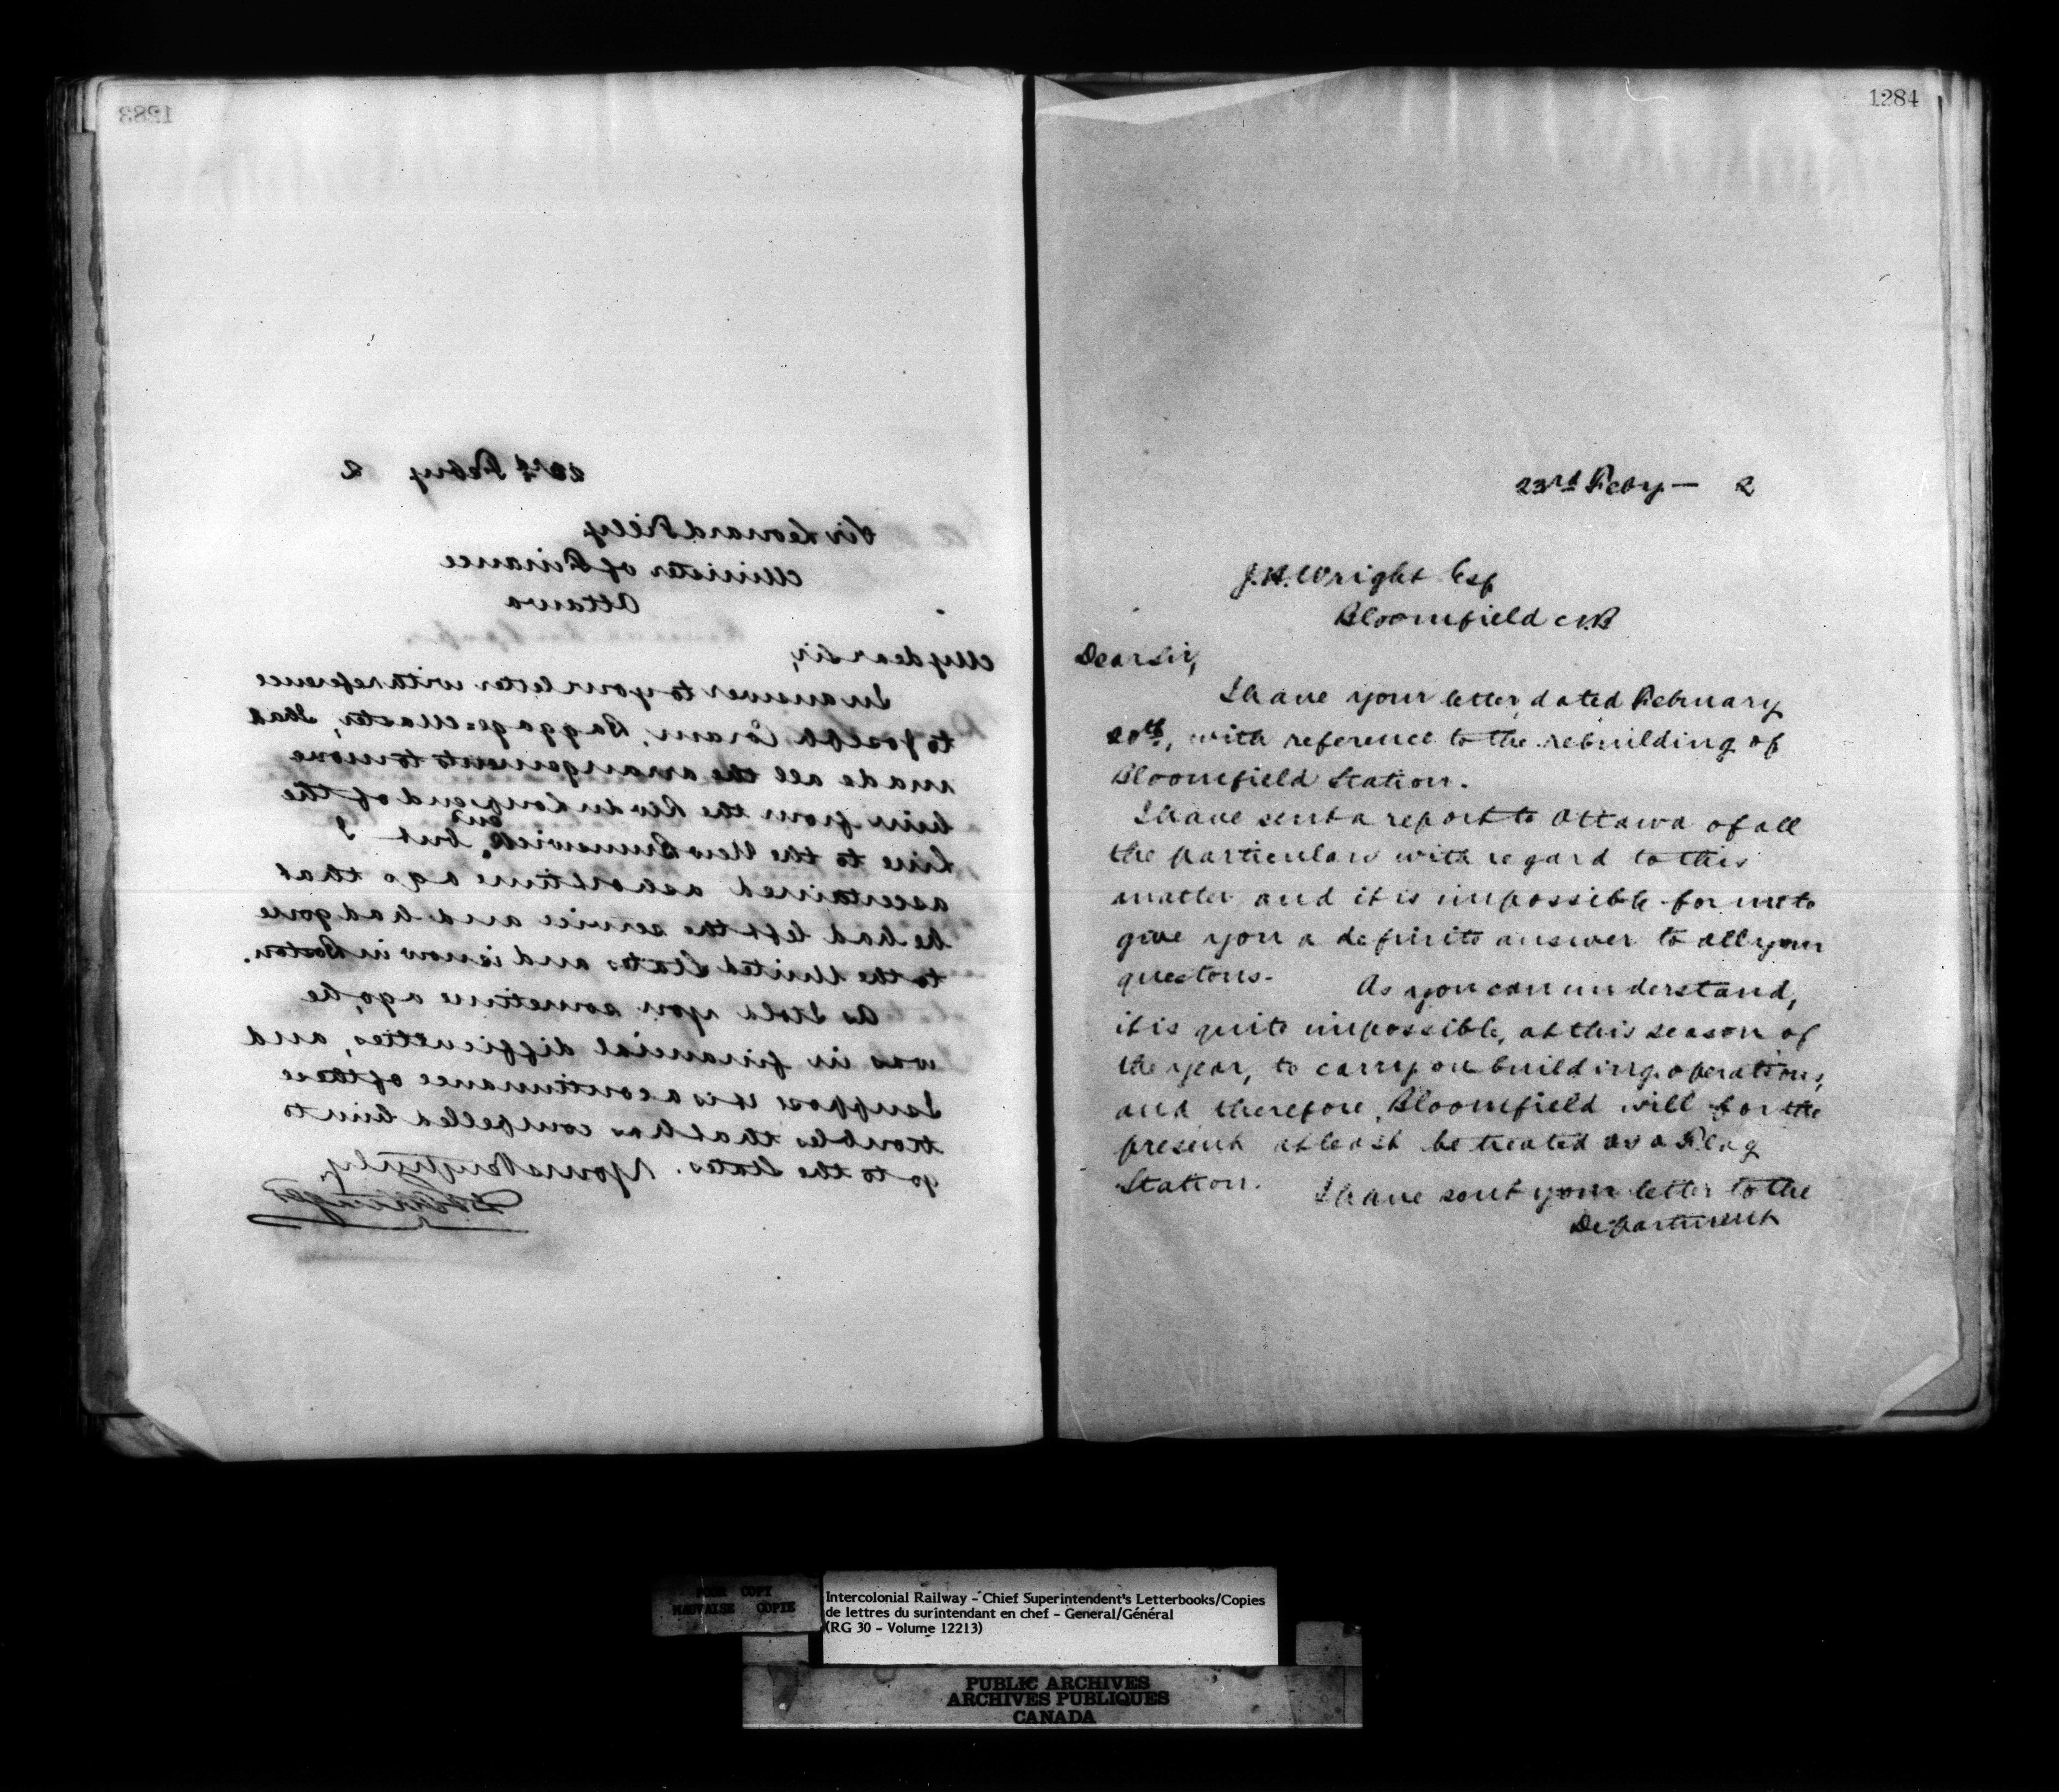 1283
23rd Feby 2
Sir Leonard Tilly
Minister of Finance
Ottawa
My dear Sir,
In answer to your letter with reference
to Joseph Coram, Baggage=Master, I had
made all the arrangements to move
him from the Riv du Loup end of the
line to the New Brunswick end, but I
ascertained a short time ago that
he had left the service and had gone
to the United States and is now in Boston.
As I told you sometime ago, he
was in financial difficulties, and
I suppose it is a continuance of these
troubles that has compelled him to
go to the States. Yours very truly,
1284
23rd Feby — 2
J.H. Wright Esq
Bloomfield N.B
Dear Sir,
I have your letter, dated February
20th, with reference to the rebuilding of
Bloomfield Station.
I have sent a report to Ottawa of all
the particulars with regard to this
matter and it is impossible for me to
give you a definite answer to all your
questons.
As you can understand,
it is quite impossible, at this season of
the year, to carry on building operations,
and therefore, Bloomfield will for the
present at least be treated as a Flag
Station.
I have sent your letter to the
Department
POOR COPY
MAUVAISE COPIE
Intercolonial Railway - Chief Superintendent's Letterbooks/Copies
de lettres du surintendant en chef - General/Général
(RG 30 - Volume 12213)
PUBLIC ARCHIVES
ARCHIVES PUBLIQUES
CANADA